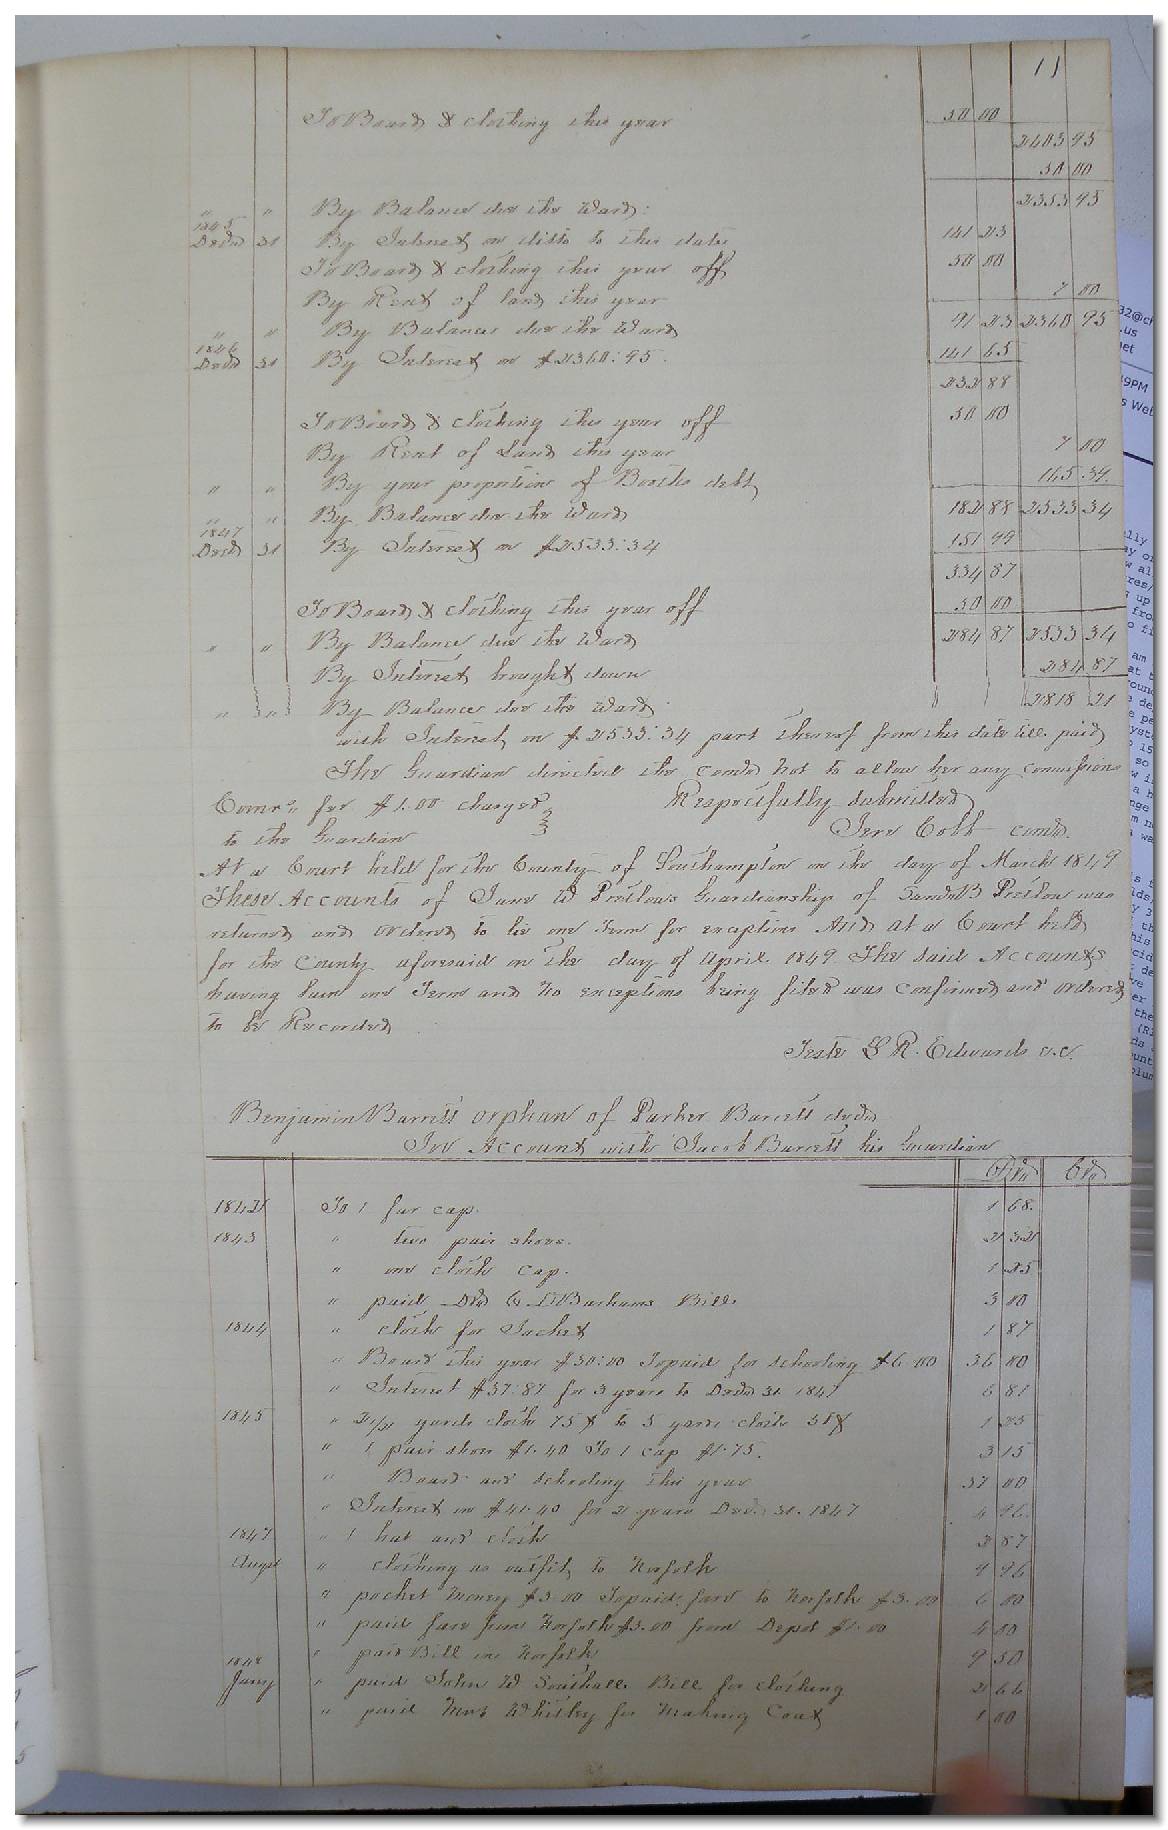 11
To Board & clothing this year 50 00
2403 95
50 00
" " By Balance due the Ward: 2353 95
1845
Decr 31 By Interest on ditto to this date 141 23
To Board & clothing this year off 50 00
By Rent of land this year 7 00
" " By Balance due the Ward 91 23 2360 95
1846
Decr 31 By Interest on $2360:95. 141 65
232 88
To Board & clothing this year off 50 00
By Rent of Land this year 7 00
" " By your proportion of Booths debt 165.39.
" " By Balance due the Ward 182 88 2533 34
1847
Decr 31 By Interest on $2533:34 151 99
334 87
To Board & clothing this year off 50 00
" " By Balance due the Ward 284 87 2533 34
By Interest brought down 284 87
" " By Balance due the Ward 2818 21
with Interest on $2533:34 part thereof from this date till paid
The Guardian directed the comr not to allow her any commissions
Comrs. fee $1.00 charged Respectfully submitted
to the Guardian Jere Cobb comr.
At a Court held for the County of Southampton on the day of March 1849
These Accounts of Jane W Pretlows Guardianship of B Pretlow was
returned and ordered to lie one Term for exceptions And at a Court held
for the County aforesaid on the day of April 1849 The said Accounts
having lain one Term and no exceptions being filed was confirmed and ordered
to be Recorded
Teste L R. Edwards c.c.
Benjamin Barrett orphan of Parker Barrett decd
In Account with Jacob Barrett his Guardian
Dr Cr
1842 To 1 fur cap. 1 68.
1843 " two pair shoes. 2 32
" one cloth cap. 1 25
" paid Dr C D Barhams Bill. 3 00
1844 " cloth for Jacket 1 87
" Board this year $30:00 To paid for schooling $6.00 36 00
" Interest $37:87 for 3 years to Decr 31. 1847 6 81
1845 " 2 1/2 yards cloth to 5 yards cloth 1 25
" 1 pair shoes $1.40 To 1 cap $1.75. 3 15
" Board and schooling this year 37 00
" Interest on $41.40 for 2 years Decr. 31. 1847 4 96.
1847 " 1 hat and cloth 2 87
Augst " clothing as outfit to Norfolk 4 96
" pocket money $3.00 To paid fare to Norfolk $3.00 6 00
" paid fare from Norfolk $3.00 from Depot $1.00 4 00
" paid Bill in Norfolk 9 50
1848
Jany " paid John W Southall Bill for clothing 2 66
" paid Mrs Whitley for making Coat 1 00